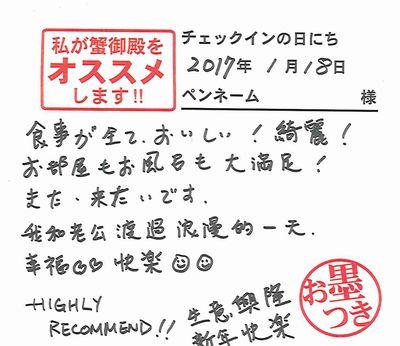 私が蟹御殿を
オススメ
します!!
チェックインの日にち
2017年 1月18日
ペンネーム 様
食事が全て、おいしい！綺麗！
お部屋もお風呂も大満足！
また、来たいです.
我和老公渡過浪漫的一天.
幸福 快樂
HIGHLY
RECOMMEND!!
生意興隆
新年快樂
お墨つき